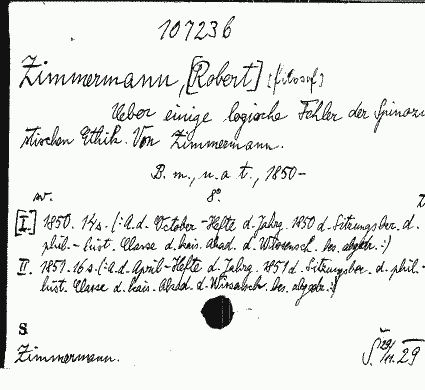 107236
Zimmermann, [Robert] [filosof]
Ueber einige logische Fehler der Spinozi
stischen Ethik. Von Zimmermann.
B. m., u. a t., 1850-
sv. 8°.
[I.] 1850. 14 s. (: A. d. October-Hefte d. Jahrg. 1850 d. Sitzungsber. d.
phil.-hist. Classe d. kais. Akad. d. Wissensch. bes. abgedr. :)
II. 1851. 16 s. (: A. d. April-Hefte d. Jahrg. 1851 d. Sitzungsber. d. phil.-
hist. Classe d. kais. Akad. d. Wissensch. bes. abgedr. :)
S
Zimmermann. 29